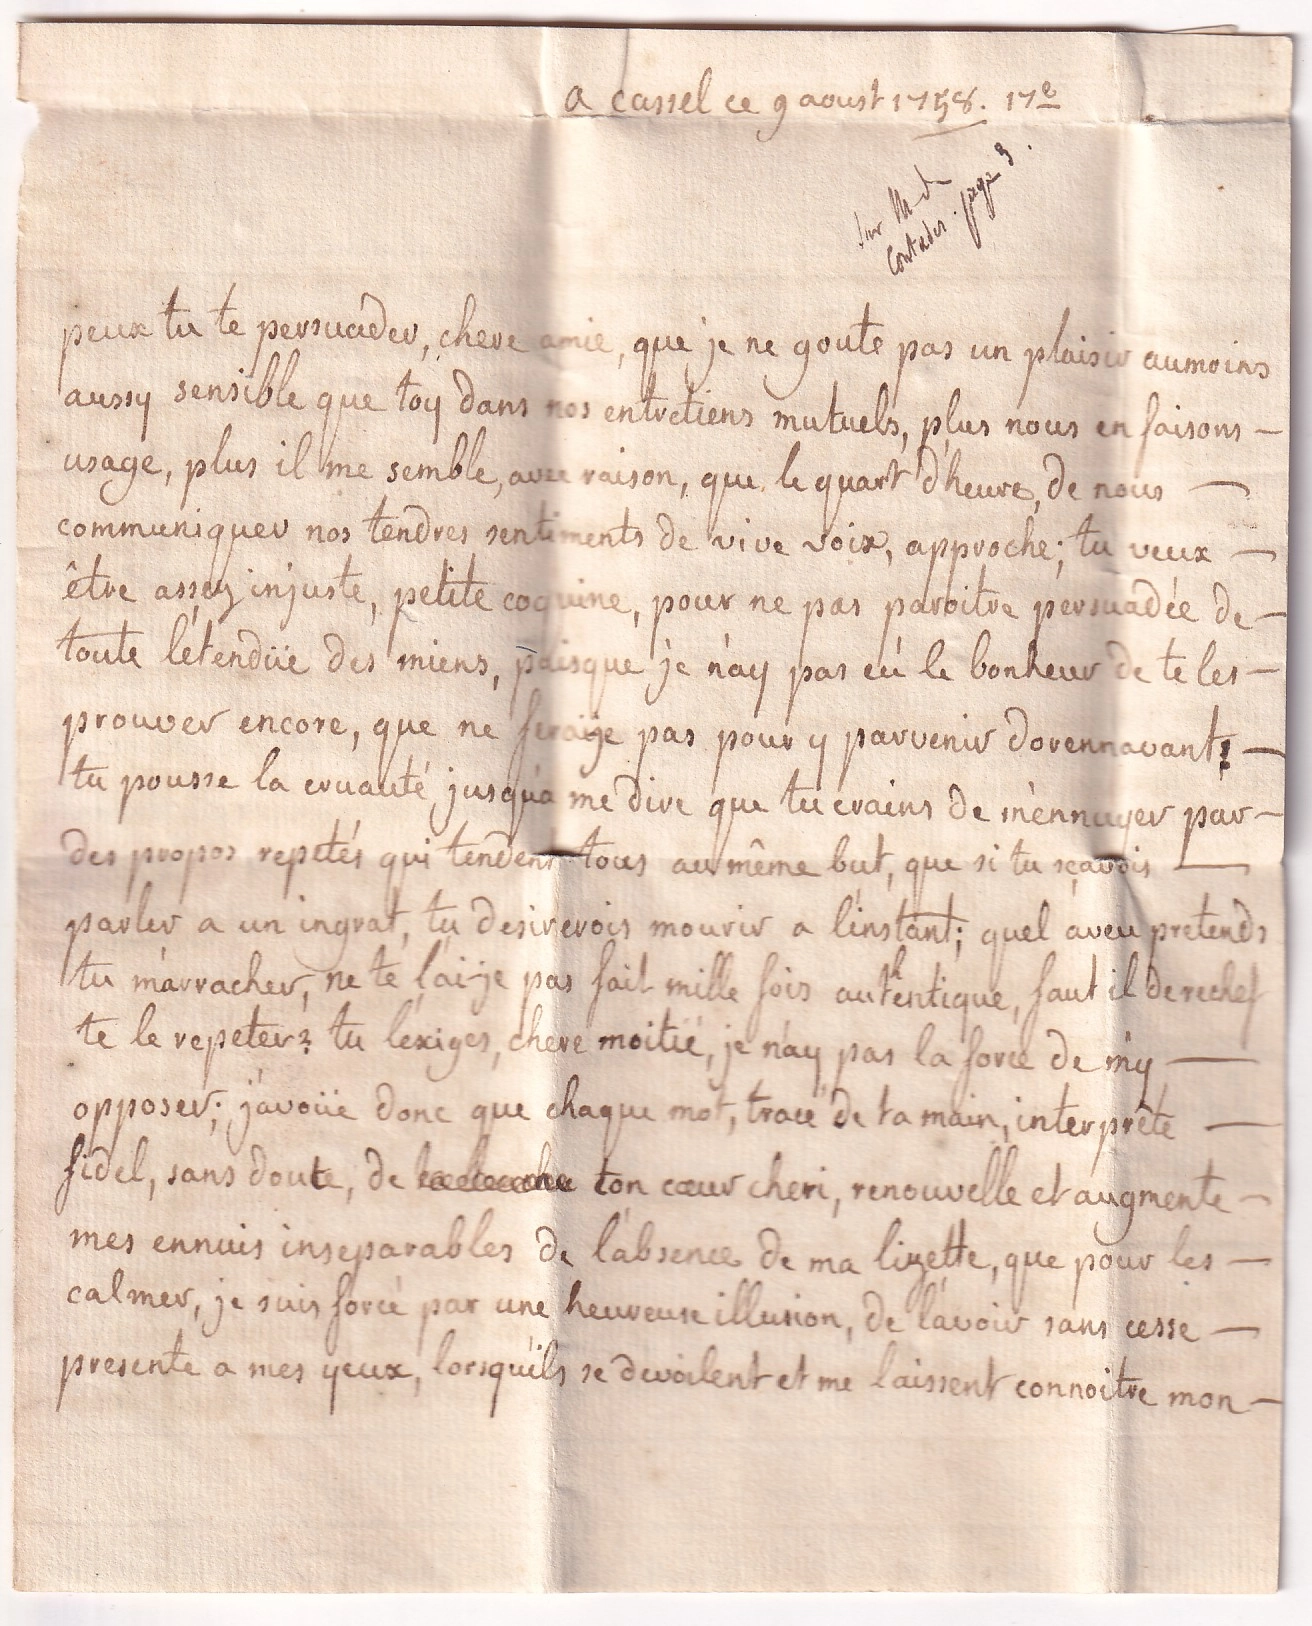 a cassel ce 9 aoust 1758. 17e
sur M de
Contades. page 3.
peux tu te persuader, chere amie, que je ne goute pas un plaisir aumoins
aussy sensible que toy dans nos entretiens mutuels, plus nous en faisons -
usage, plus il me semble, avec raison, que le quart d'heure, de nous -
communiquer nos tendres sentiments de vive voix, approche; tu veux -
être assez injuste, petite coquine, pour ne pas paroitre persuadée de -
toute l'étendüe des miens, puisque je n'ay pas eú le bonheur de te les -
prouver encore, que ne feraije pas pour y parvenir dorennavant! -
tu pousse la cruauté jusqu'a me dire que tu crains de m'ennuyer par -
des propos repetés qui tendent tous au même but, que si tu sçavois -
parler a un ingrat, tu desirerois mourir a l'instant; quel aveu pretends
tu m'arracher, ne te l'ai-je pas fait mille fois authentique, faut il derechef
te le repeter? tu l'exiges, chere moitié, je n'ay pas la force de m'y -
opposer; j'avoüe donc que chaque mot, tracé de ta main, interprête -
fidel, sans doute, de ton cœur cheri, renouvelle et augmente -
mes ennuis inseparables de l'absence de ma lizette, que pour les -
calmer, je suis forcé par une heureuse illusion, de l'avoir sans cesse -
presente a mes yeux, lorsqu'ils se devoilent et me laissent connoitre mon -